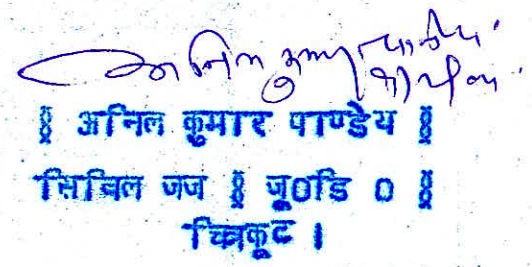 अनिल कुमार पाण्डेय
॥ अनिल कुमार पाण्डेय ॥
सिविल जज ॥ जू०डि ० ॥
चित्रकूट ।